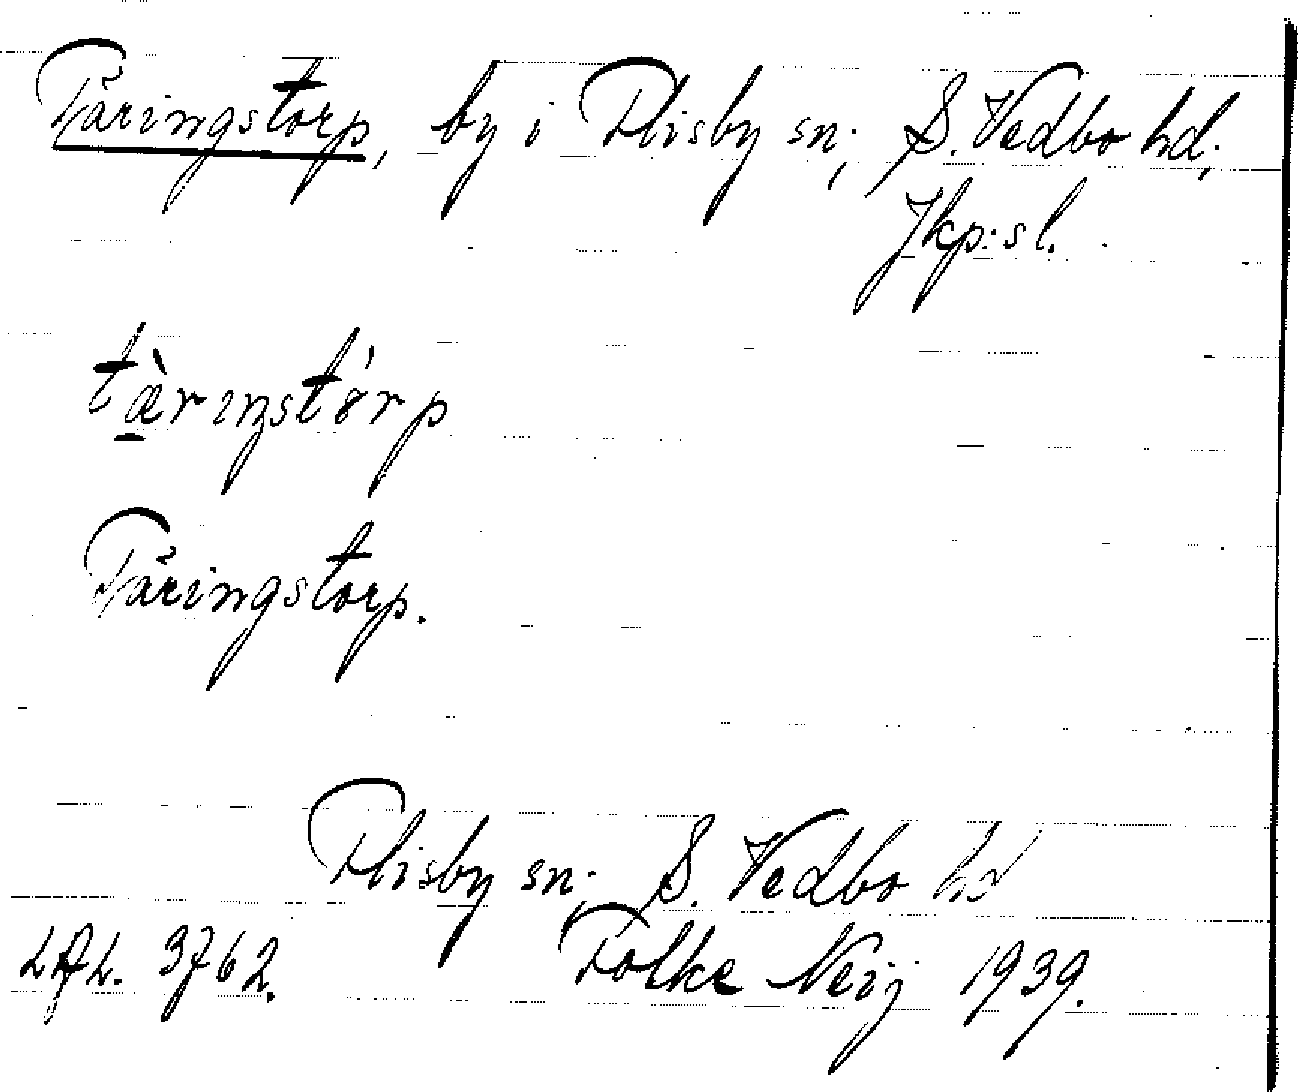 Täringstorp, by i Flisby sn; S. Vedbo hd;
Jkp:s l.
tæ̀rıŋstórp
Täringstorp.
Flisby sn; S. Vedbo hd
LAL. 3762. Folke Neij 1939.